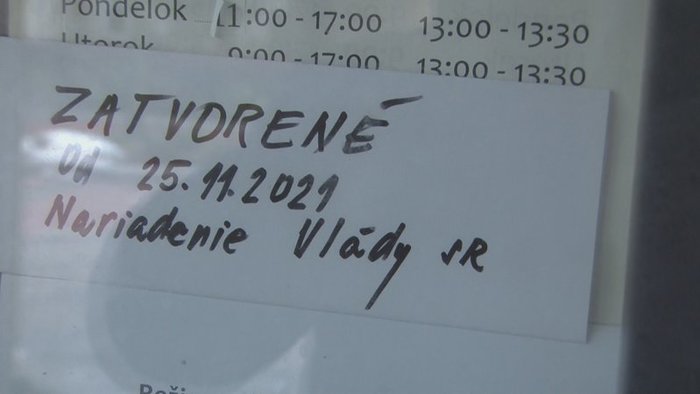 Pondelok 11:00 - 17:00 13:00 - 13:30
Utorok 9:00 - 17:00 13:00 - 13:30
ZATVORENÉ
Od 25.11.2021
Nariadenie Vlády SR